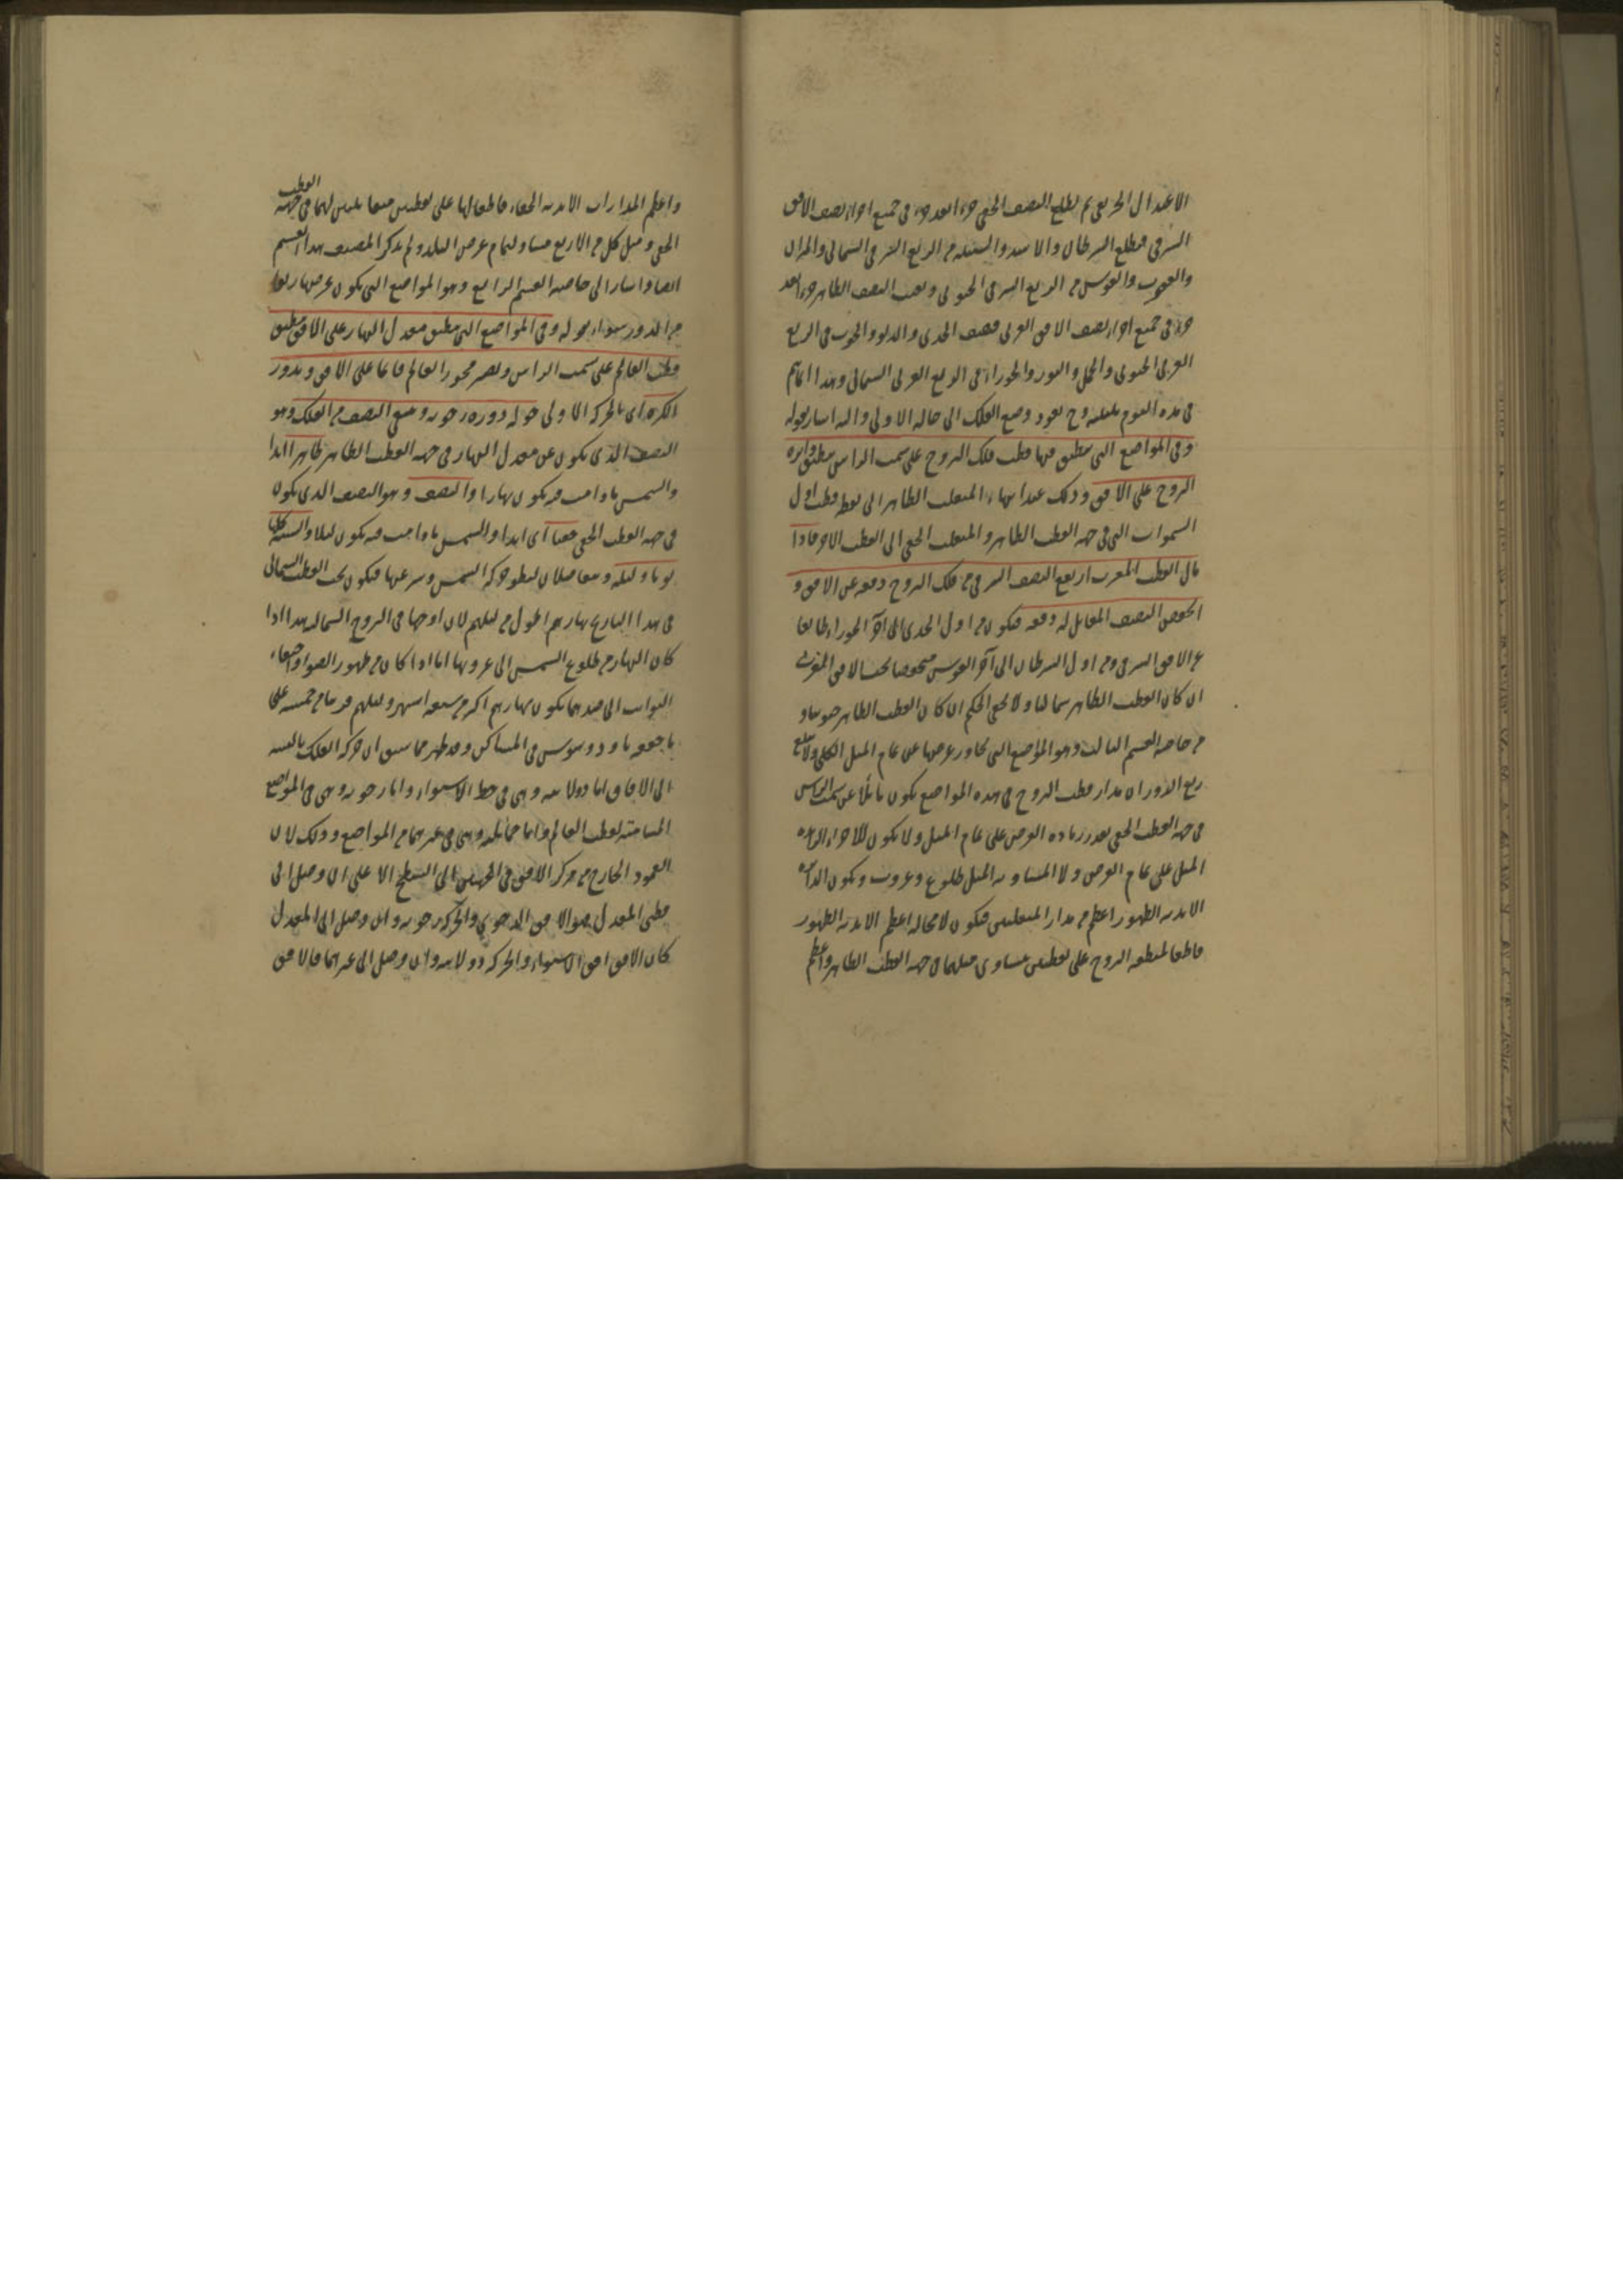 الاعتدال الخريفي ثم يطلع النصف الخفي جزءا بعد جزء في جميع اجزاء نصف الافق
الشرقي فيطلع السرطان والاسد والسنبلة من الربع الشرقي الشمالي والميزان
والعقرب والقوس من الربع الشرقي الجنوبي ويغيب النصف الظاهر جزءا بعد
جزء في جميع اجزاء نصف الافق الغربي فيغيب الجدي والدلو والحوت في الربع
الغربي الجنوبي والحمل والثور والجوزاء في الربع الغربي الشمالي وهذا
في مدة اليوم بليلته وح يعود وضع الفلك الى حاله الاولى واليه اشار بقوله
وفي المواضع التي ينطبق فيها قطب فلك البروج على سمت الراس ينطبق دايرة
البروج على الافق وذلك عند انتهاء المنقلب الظاهر الى نقطة قطب اول
السموات التي في جهة القطب الظاهر والمنقلب الخفي الى القطب الاخر فاذا
مال القطب الى المغرب ارتفع النصف الشرقي من فلك البروج دفعة عن الافق و
انخفض النصف المقابل له دفعة فيكون من اول الجدي الى آخر الجوزاء طالعا
عن الافق الشرقي ومن اول السرطان الى آخر القوس منخفضا تحت الافق المغربي
ان كان القطب الظاهر شماليا ولا يخفى الحكم ان كان القطب الظاهر جنوبيا و
من خاصة القسم الثالث وهو المواضع التي تجاوز عرضها عن تمام الميل الكلي ولا يبلغ
ربع الدور ان مدار قطب البروج في هذه المواضع يكون مائلا عن سمت الراس
في جهة القطب الخفي بقدر زيادة العرض على تمام الميل ولا يكون للاجزاء الزائدة
الميل على تمام العرض ولا المساوية الميل طلوع وغروب ويكون الدائرة
الابدية الظهور اعظم من مدار المنقلبين فيكون لا محالة اعظم الابدية الظهور
قاطعا لمنطقة البروج على نقطتين يتساوى ميلهما في جهة القطب الظاهر واعظم
واعظم المدارات الابدية الخفاء قاطعا لها على نقطتين متقابلتين لهما في جهة القطب
الخفي وميل كل من الاربع مساو لتمام عرض البلد ولم يذكر المصنف هذا القسم
ايضا واشار الى خاصة القسم الرابع وهو المواضع التي يكون عرضها ربعا
من الدور سواء بقوله وفي المواضع التي ينطبق معدل النهار على الافق ينطبق
قطب العالم على سمت الراس ويصير محور العالم قائما على الافق ويدور
الكرة اى بالحركة الاولى حوله دورة رحوية ويبقى النصف من الفلك وهو
النصف الذي يكون عن معدل النهار في جهة القطب الظاهر ظاهرا ابدا
والشمس ما دامت فيه يكون نهارا والنصف وهو النصف الذي يكون
في جهة القطب الخفي خفيا اى ابدا والشمس ما دامت فيه يكون ليلا والسنة كلها
يوما وليلة ويتفاضلان لبطؤ حركة الشمس وسرعتها فيكون تحت القطب الشمالي
في هذا التاريخ نهارهم اطول من ليلهم لان اوجها في البروج الشمالية هذا اذا
كان النهار من طلوع الشمس الى غروبها اما اذا كان من ظهور الضوء واختفاء
الثوابت الى ضدهما يكون نهارهم اكثر من سبعة اشهر وليلهم قريبا من خمسة على
ما حققه ثاودوسيوس في المساكن وقد ظهر مما سبق ان حركة الفلك بالنسبة
الى الافاق اما دولابية وهي في خط الاستواء واما رحوية وهي في المواضع
المسامتة لقطب العالم واما حمايلية وهي في غيرهما من المواضع وذلك لان
العمود الخارج من مركز الافق في الجهتين الى السطح الاعلى ان وصل الى
قطبي المعدل فهو الافق الرحوي والحركة رحوية وان وصل الى المعدل
كان الافق افق الاستواء والحركة دولابية وان وصل الى غيرهما فالافق